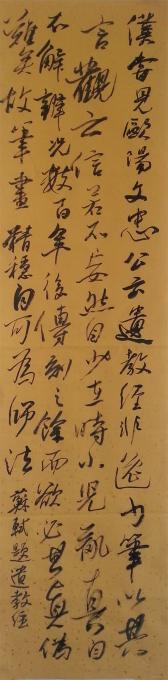 僕嘗見歐陽文忠公云遺教經非逸少筆以其
言觀之信若不妄然自少在時小兒亂真自
不解辨況數百年後傳刻之餘而欲必其真偽
難矣故筆畫精穩自可為師法
蘇軾題遺教經